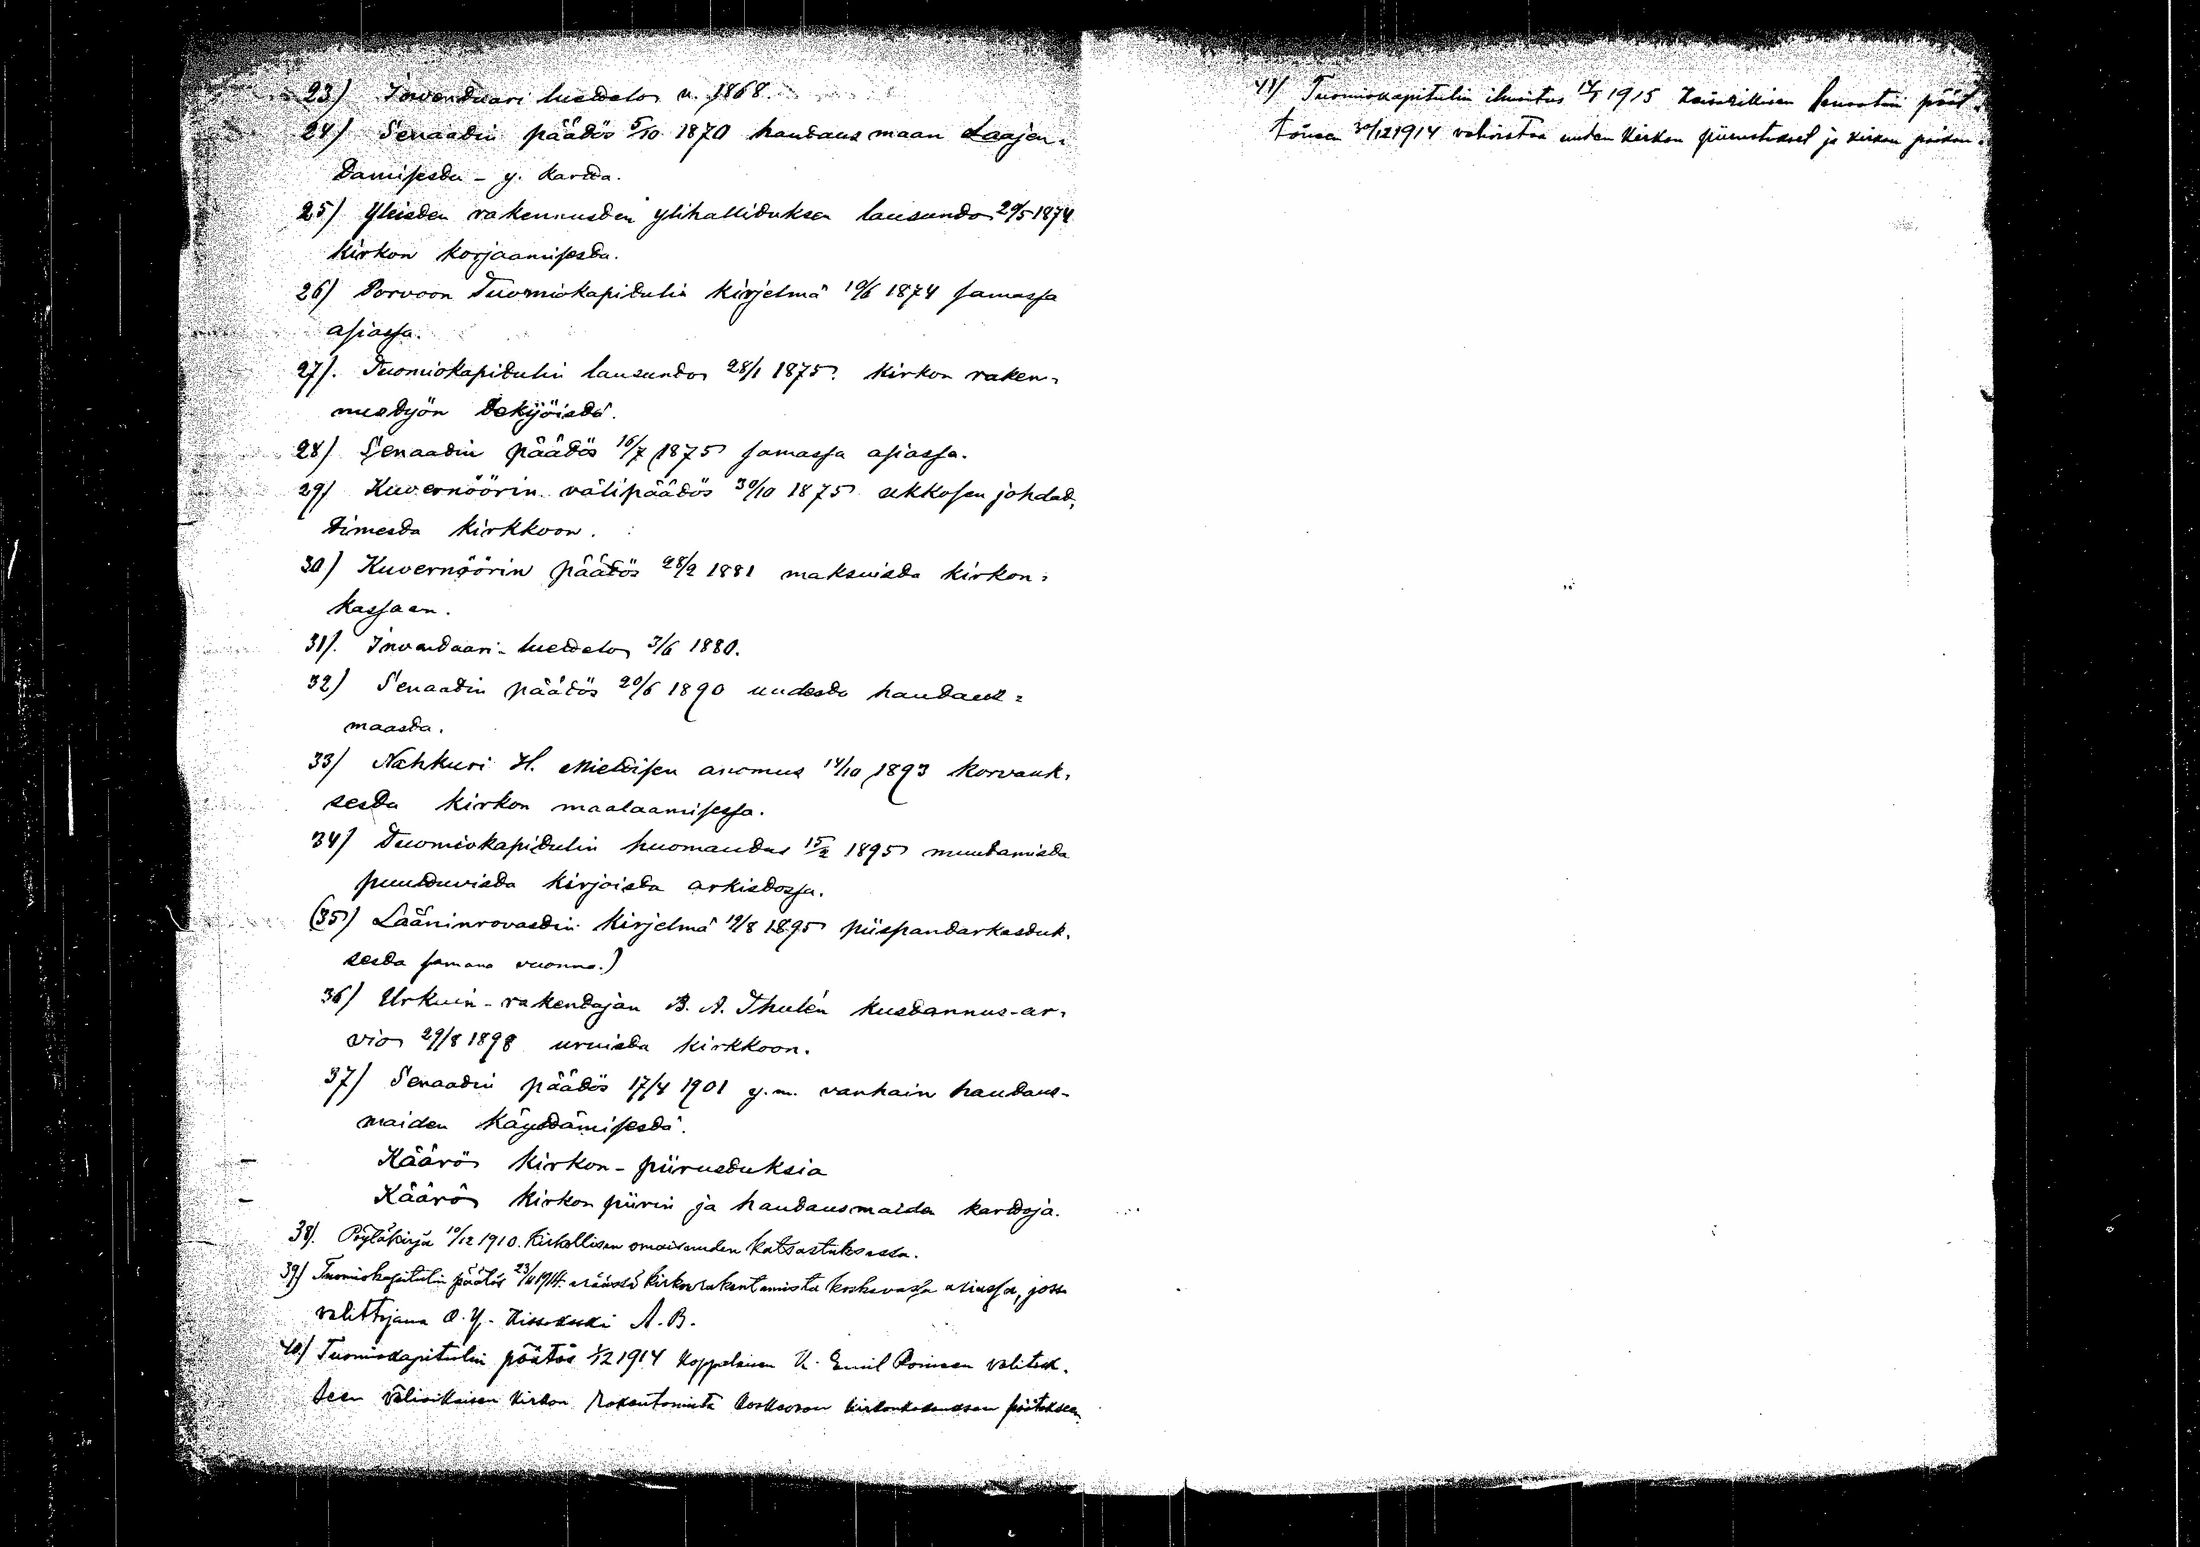 23) Inventaari luettelo v. 1868.
24) Senaatin päätös 5/10 1870 hautausmaan Laajen=
tamisesta - y. kartta.
25) Yleisten rakennusten ylihallituksen lausunto 29/5 1874
kirkon korjaamisesta.
26) Porvoon Tuomiokapitulin kirjelmä 10/6 1874 samassa
asiassa.
27). Tuomiokapitulin lausunto 28/1 1875 kirkon raken=
nustyön tekijöistä.
28) Senaatin päätös 16/7 1875 samassa asiassa.
29) Kuvernöörin välipäätös 30/10 1875 ukkosen johdat=
timesta kirkkoon.
30) Kuvernöörin päätös 28/2 1881 maksuista kirkon=
kassaan.
31). Inventaari-luettelo 3/6 1880.
32) Senaatin päätös 20/6 1890 uudesta hautaus=
maasta.
33) Nahkuri H. Miettisen anomus 14/10 1893 korvauk=
sesta kirkon maalaamisessa.
34) Tuomiokapitulin huomautus 15/2 1895 muutamista
puuttuvista kirjoista arkistossa.
(35) Lääninrovastin kirjelmä 19/8 1895 piispantarkastuk=
sesta samana vuonna.)
36) Urkuin-rakentajan B. A. Thulén kustannus-ar=
vio 29/8 1898 uruista kirkkoon.
37) Senaatin päätös 17/4 1901 y.m. vanhain hautaus-
maiden käyttämisestä.
Käärö kirkon-piirustuksia
Käärö kirkon piirin ja hautausmaita karttoja.
38). Pöytäkirja 10/12 1910. Kirkollisen omaisuuden katsastuksessa.
39) Tuomiokapitulin päätös 23/11 1914 eräässä kirkon rakentamista koskevassa asiassa, jossa
valittajana O.Y. Kissakoski A.B.
40.) Tuomiokapitulin päätös 3/12 1914 Kappalaisen K. Emil Poinesen valituk=
seen väliaikaisen kirkon rakentamista koskevaan kirkonkokouksen päätökseen.
41) Tuomiokapitulin ilmoitus 1915 Keisarillisen Senaatin päät=
töksen 30/12 1914 vahvistaa uuden kirkon piirustukset ja kirkon paikan.